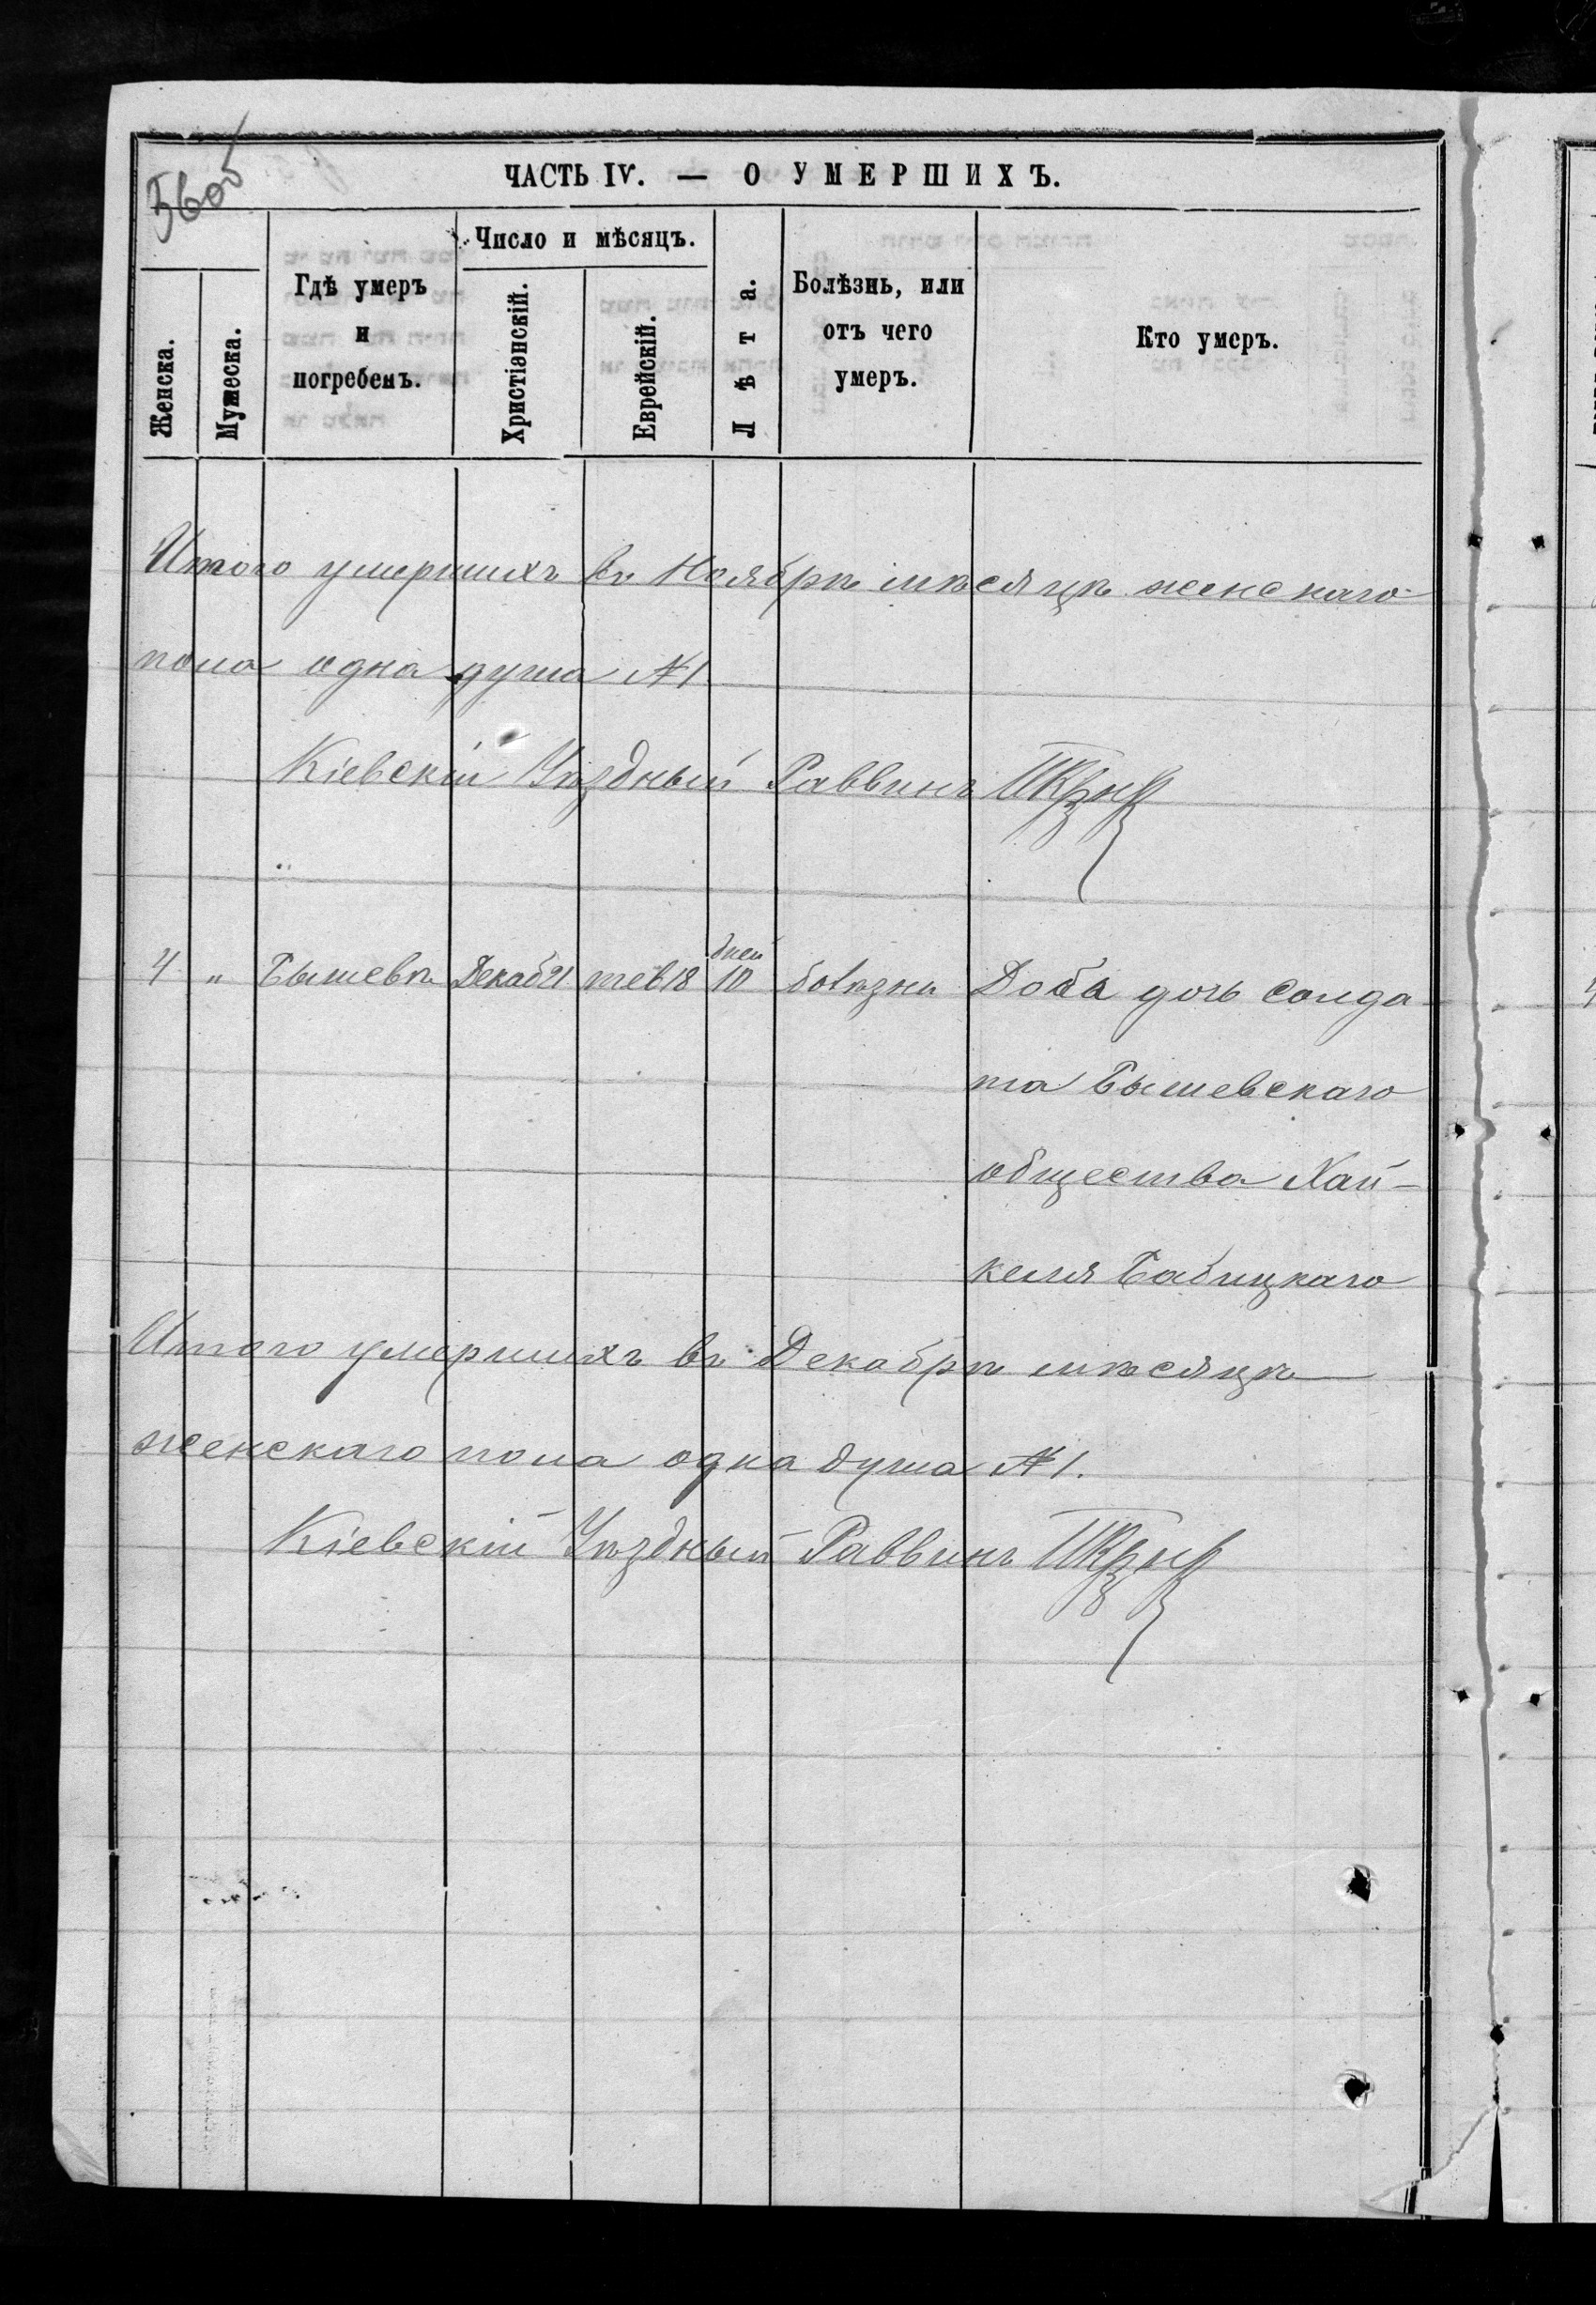 360об
ЧАСТЬ IV. — О УМЕРШИХЪ.
Женска.
Мужеска.
Гдѣ умеръ
и
погребенъ.
Число и мѣсяцъ.
Христіанскій.
Еврейскій.
Лѣта.
Болѣзнь, или
отъ чего
умеръ.
Кто умеръ.
Итого умершихъ въ Ноябрѣ мѣсяцѣ женскаго
пола одна душа №1
Кіевскій Уѣздный Раввинъ
дней
4 " Бышевѣ Декаб 21 тев 18 10 болѣзни Доба дочь солда
та Бышевскаго
общества Хай-
келя Бабицкаго
Итого умершихъ въ Декабрѣ мѣсяцѣ
женскаго пола одна душа №1.
Кіевскій Уѣздный Раввинъ